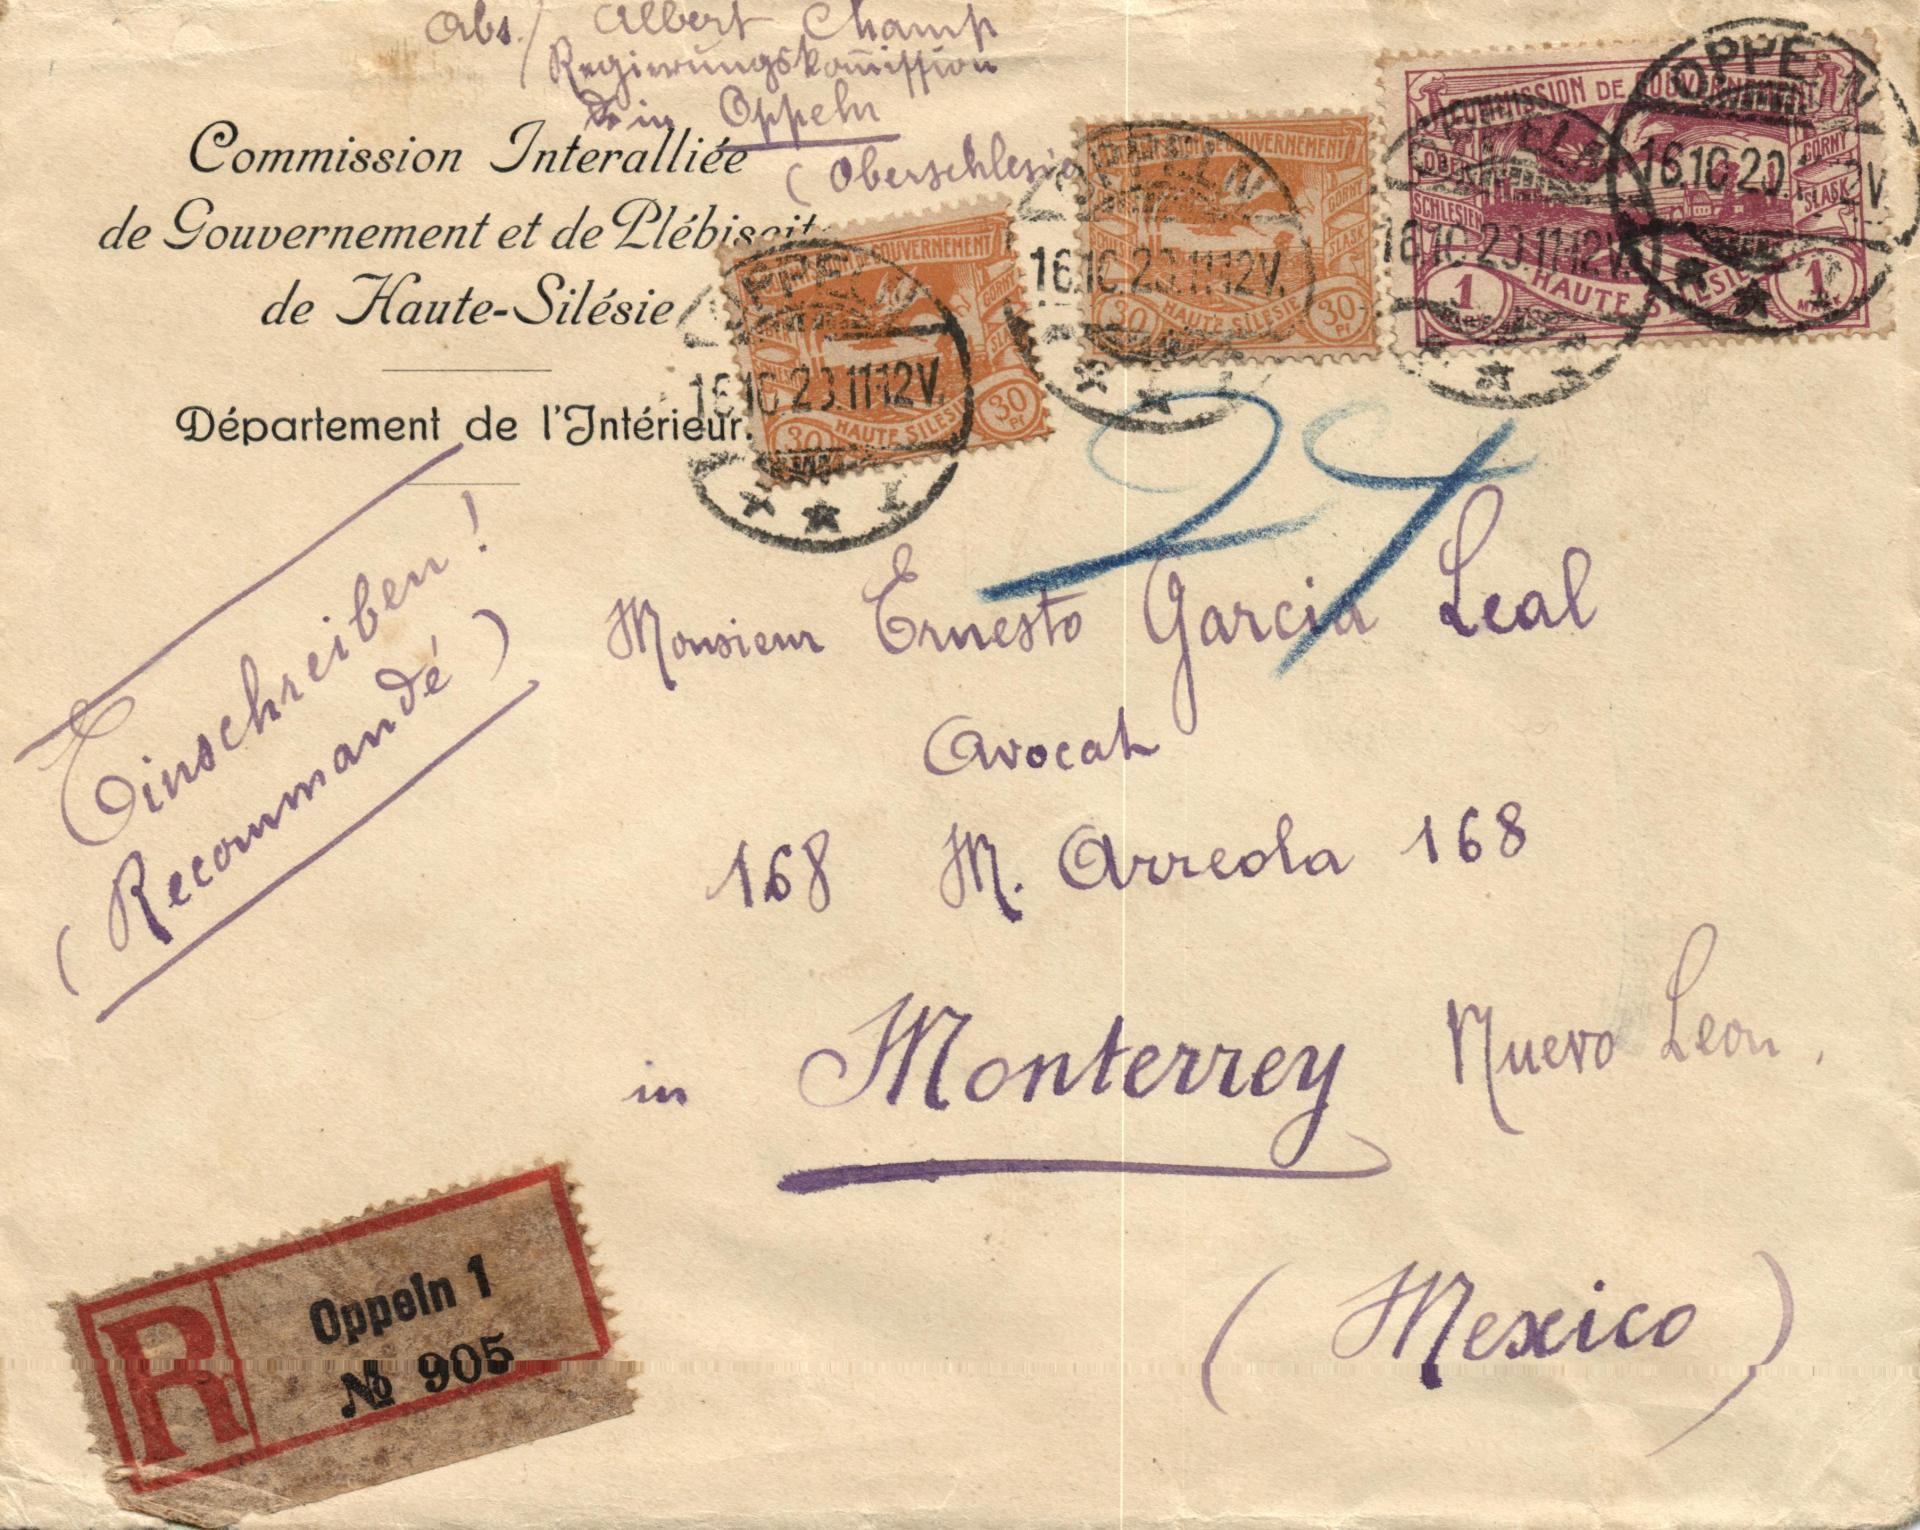 Abs./ Albert Champ
Regierungskom̄ission
in Oppeln
(Oberschlesien
Commission Interalliée
de Gouvernement et de Plébiscite
de Haute-Silésie
Département de l'Intérieur.
COMMISSION DE GOUVERNEMENT
HAUTE SILÉSIE
30 30 Pf
OPPELN
16.10.20.11-12V.
* * 1
COMMISSION DE GOUVERNEMENT
GORNY SLASK
HAUTE SILÉSIE
30 30 Pf
OPPELN
16.10.20.11-12V.
* * 1
COMMISSION DE GOUVERNEMENT
OBER SCHLESIEN
GORNY SLASK
HAUTE SILÉSIE
1 MARK 1 MARK
OPPELN
16.10.20.11-12V.
OPPELN
16.10.20.11-12V
* * 1
Einschreiben!
(Recommandé)
Monsieur Ernesto Garcia Leal
Avocat
168 M. Arreola 168
in Monterrey Nuevo Leon.
(Mexico)
R
Oppeln 1
№ 905